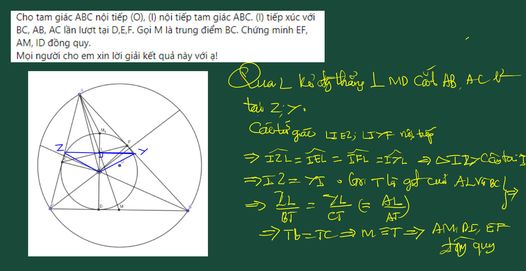 Cho tam giác ABC nội tiếp (O), (I) nội tiếp tam giác ABC. (I) tiếp xúc với
BC, AB, AC lần lượt tại D,E,F. Gọi M là trung điểm BC. Chứng minh EF,
AM, ID đồng quy.
Mọi người cho em xin lời giải kết quả này với ạ!
Qua L kẻ đg thẳng ⊥ MD cắt AB, AC
tại Z; Y.
Các tứ giác LIEZ; LIYF nội tiếp
⇒ IZL = IEL = IFL = IYL ⇒ △IZY cân tại I
⇒ IZ = YI. Gọi T là gđ của AL và BC
⇒ ZL/BT = YL/CT (= AL/AT)
⇒ Tb = TC ⇒ M ≡ T ⇒ AM, DI, EF
đồng quy
Z
Y
M
D